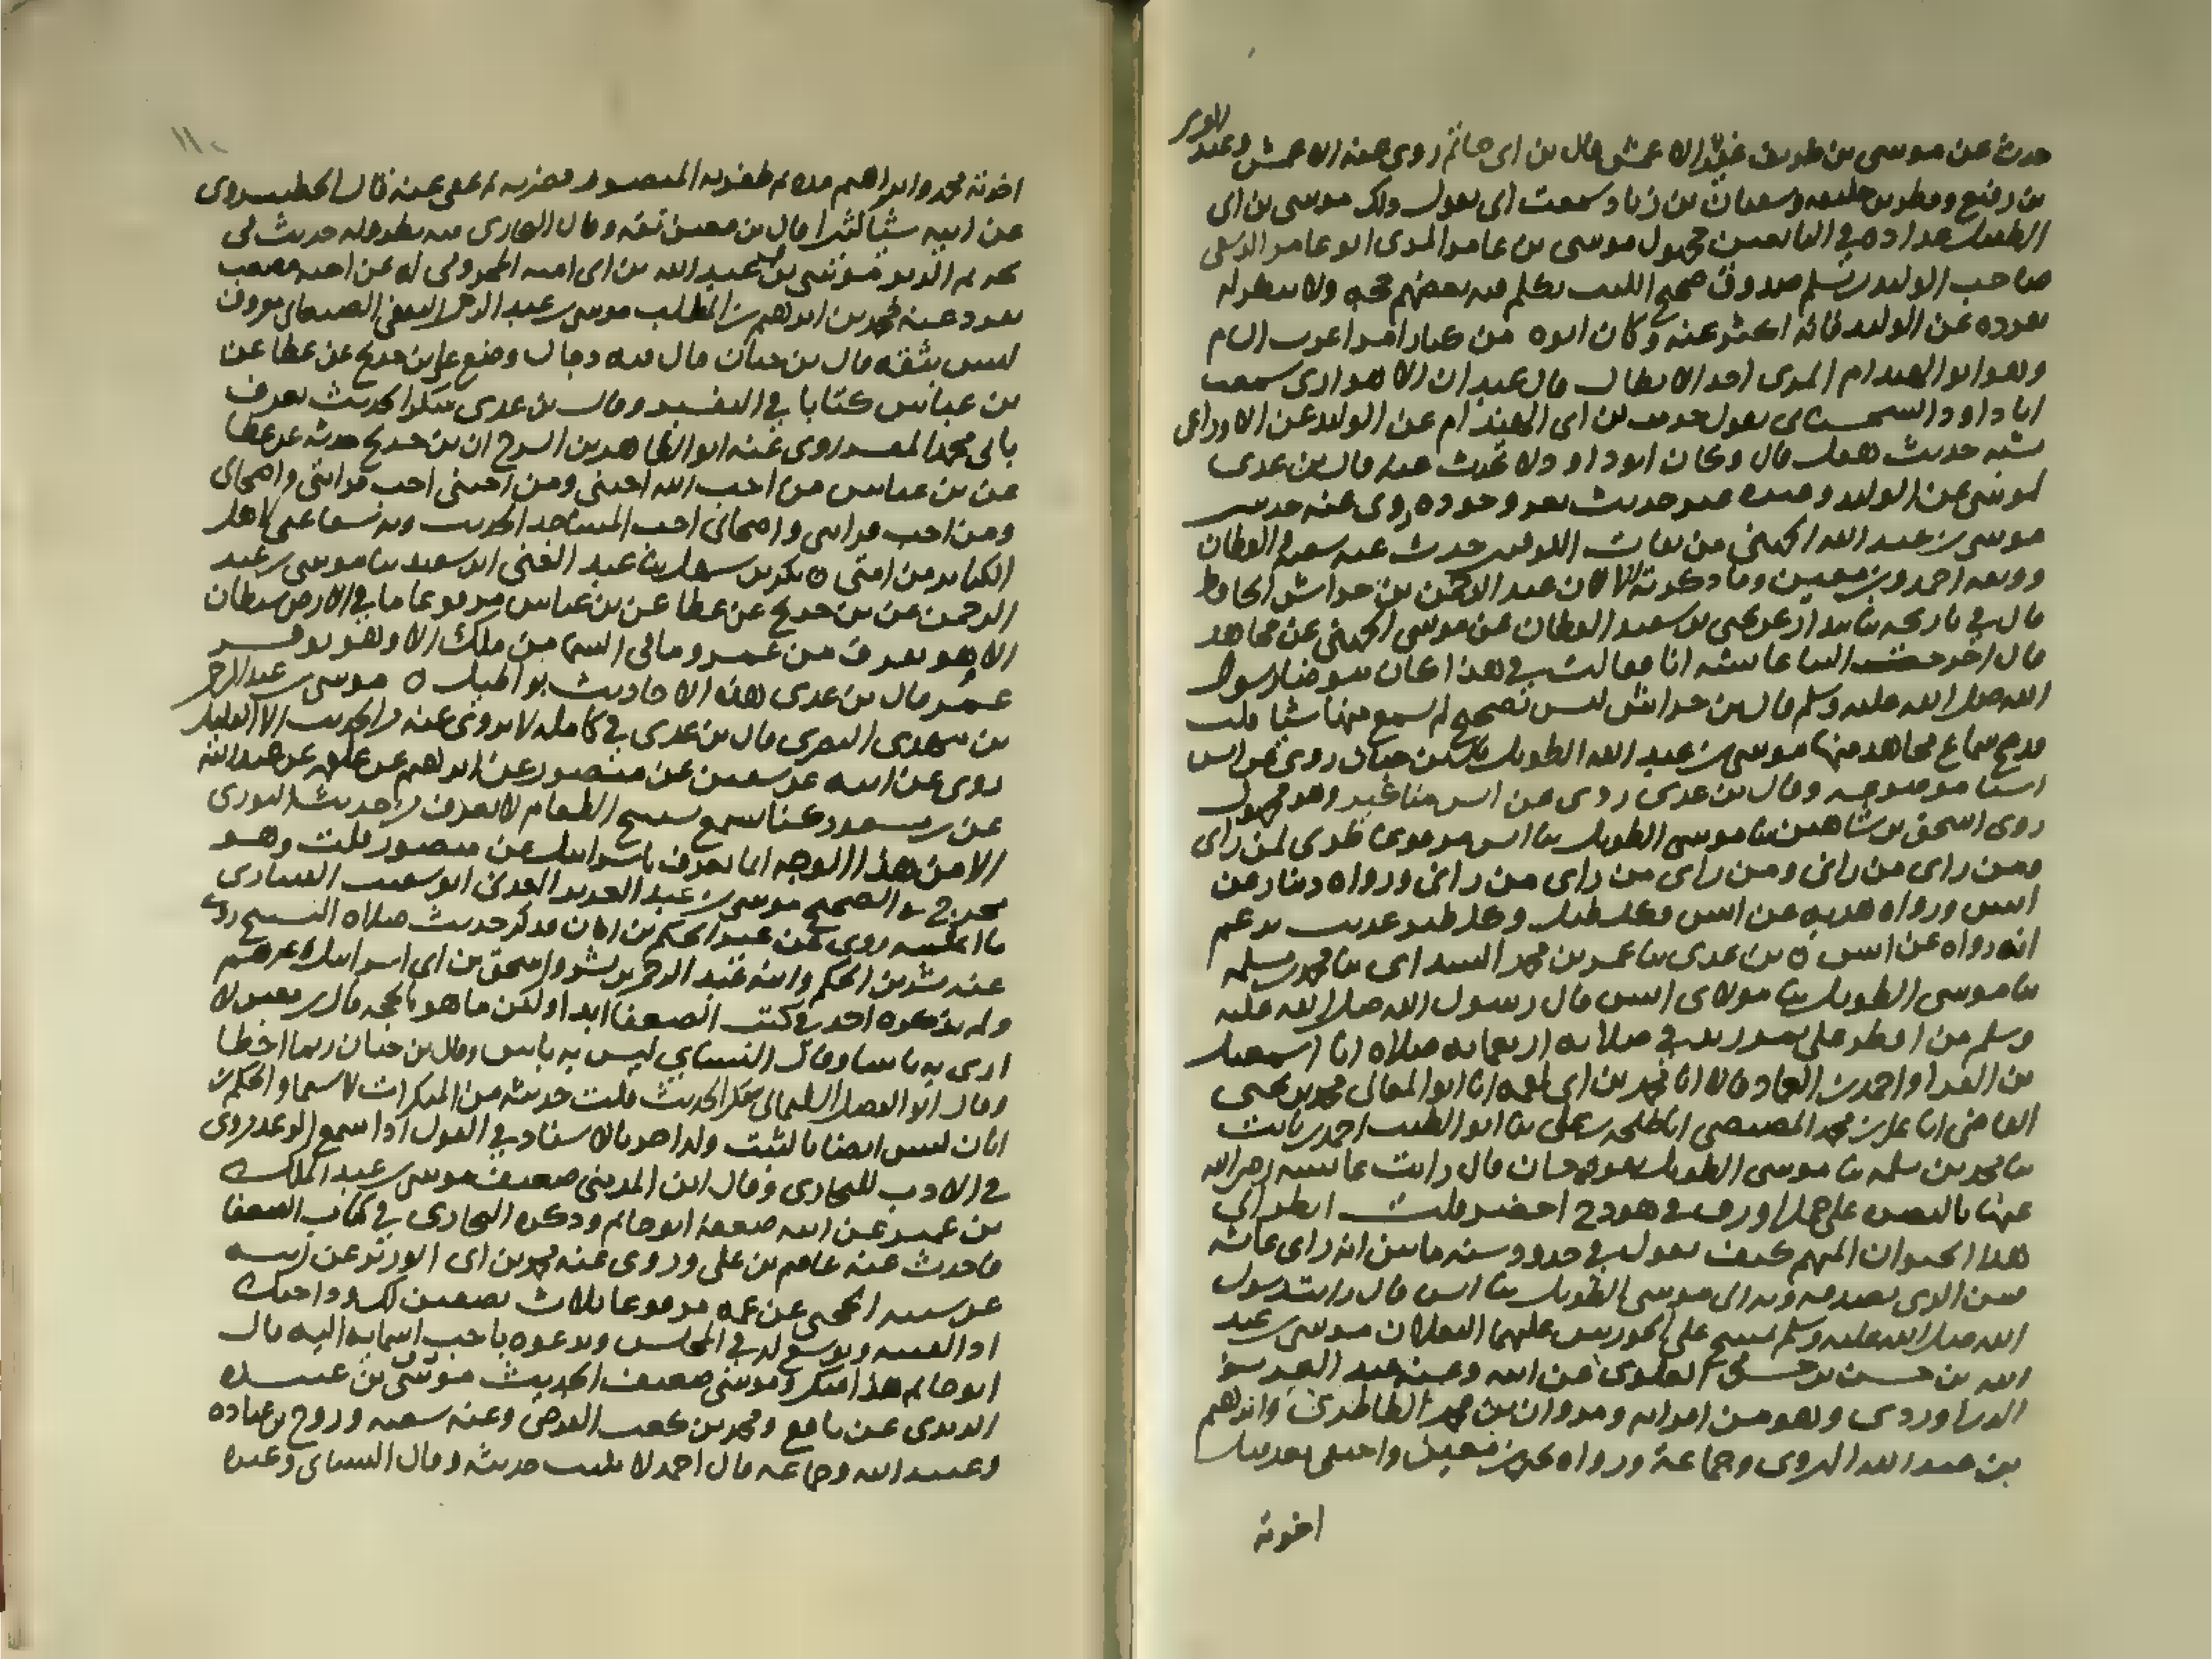 العزيز
حدث عن موسى بن طريف عنه الاعمش قال بن ابي حاتم روى عنه الاعمش وعبد
بن رفيع وفطر بن خليفة وسفيان بن زياد سمعت ابي يقول ذلك موسى بن ابي
الطفيل عداده في التابعين مجهول موسى بن عامر المري ابو عامر الدمشقي
صاحب الوليد بن مسلم صدوق صحيح الكتب تكلم فيه بعضهم بغير حجة ولا ينكر له
تفرده عن الوليد فانه اكثر عنه وكان ابوه من كبار امرا عرب الشام
وهو ابو الهيذام المري احد الابطال قال عبدان الاهوازي سمعت
ابا داود السجستاني يقول حديث بن ابي الهيذام عن الوليد عن الاوزاعي
شبه حديث هقل قال وكان ابو داود لا يحدث عنه قال بن عدي
موسى بن عبد الله الجهني من ثقات الكوفيين حدث عنه سعيد القطان
ووثقه احمد وبن معين وما ذكرته الا لان عبد الرحمن بن خراش الحافظ
قال في تاريخه ثنا بندار عن يحيى بن سعيد القطان عن موسى الجهني عن مجاهد
قال اخرجت الينا عايشه انا فقالت في هذا كان يتوضا رسول
الله صلى الله عليه وسلم قال بن خراش ليس بصحيح لم يسمع منها شيا قلت
قد صح سماع مجاهد منها موسى بن عبد الله الطويل قال بن حبان روى عن انس
اشيا موضوعه وقال بن عدي روى عن انس مناكير وهو مجهول
روى اسحق بن شاهين ثنا موسى الطويل ثنا انس مرفوعا طوبى لمن راى
ومن راى من راني ومن راى من راى من راني ورواه دينار عن
انس ورواه هدبه عن انس وكلكليل وكل طير غريب يزعم
انه رواه عن انس ه بن عدي ثنا عمر بن محمد ثنا محمد بن مسلمه
ثنا موسى الطويل ثنا مولاي انس قال رسول الله صلى الله عليه
وسلم من افطر على تمر زيد في صلاته اربعمايه صلاه انا اسمعيل
بن الفرا واحمد بن العماد قالا انا محمد بن ابي لقمه انا ابو المعالي محمد بن يحيى
القاضي انا علي بن محمد المصيصي انا طلحه بن علي ثنا ابو الطيب احمد بن ثابت
ثنا محمد بن مسلمه ثنا موسى الطويل قال رايت عايشه رضي الله
عنها بالبصره على جمل اورق في هودج اخضر قلت انظر الى
هذا الحيوان المتهم كيف يقول في حدود سنه مايتين انه راى عايشه
فمن الذي يصدقه وبه الى موسى الطويل ثنا انس قال رايت رسول
الله صلى الله عليه وسلم يمسح على الجوربين عليهما النعلان موسى بن عبد
الله بن حسن بن حسن العلوي عن ابيه وعنه عبد العزيز
الدراوردي وهو من اقرانه ومروان بن محمد الطاطري وابراهيم
بن عبد الله الهروي وجماعة ورواه بن معين واختفى بعد قتل
اخوته
١١٠
اخوته محمد وابراهيم مده ثم ظفر به المنصور فضربه ثم عفى عنه قال الخطيب روى
عن ابيه شيا كثيرا قال بن معين ثقه وقال البخاري فيه نظر وله حديث في
موسى بن عبيد الله بن ابي اميه المخزومي اه عن اخيه مصعب
تفرد عنه محمد بن ابراهيم بن المطلب موسى بن عبد الرحمن الثقفي الصنعاني معروف
ليس بثقه قال بن حبان قال فيه دجال وضع على بن جريج عن عطا عن
بن عباس كتابا في التفسير وقال بن عدي منكر الحديث يعرف
بابي محمد المفسر روى عنه ابو الطاهر بن السرح ان بن جريج حدثه عن عطا
عن بن عباس من احب الله احبني ومن احبني احب قرابتي واصحابي
ومن احب قرابتي واصحابي احب المساجد الحديث وبه شفاعتي لاهل
الكباير من امتي ه بكر بن سهل ثنا عبد الغني بن سعيد ثنا موسى بن عبد
الرحمن عن بن جريج عن عطا عن بن عباس مرفوعا ما في الارض شيطان
الا هو يفرق من عمر وما في السما من ملك الا وهو يوقر
عمر قال بن عدي هذه الاحاديث بواطيل ه موسى بن عبد الرحمن
بن مهدي البصري قال بن عدي في كامله لا يروى عنه من الحديث الا القليل
روى عن ابيه عن سفين عن منصور عن ابراهيم عن علقمه عن عبد الله
عن بن مسعود كنا نسمع تسبيح الطعام لا يعرف من حديث الثوري
الا من هذا الوجه انما يعرف باسرائيل عن منصور قلت وهو
مخرج في الصحيح موسى بن عبد العزيز العدني ابو شعيب القنباري
ما اعلمه روى عن غير الحكم بن ابان فذكر حديث صلاه التسبيح روى
عنه بشر بن الحكم وابنه عبد الرحمن بن بشر واسحق بن ابي اسرايل وغيرهم
ولم يذكره احد في كتب الضعفا ابدا ولكن ما هو بالحجه قال بن معين لا
ارى به باسا وقال النسائي ليس به باس وقال بن حبان ربما اخطا
وقال ابو الفضل السليماني منكر الحديث قلت حديثه من المنكرات لا سيما والحكم بن
ابان ليس ايضا بالثبت وله اخر بالاسناد في القول اذا سمع الرعد روي
في الادب للبخاري وقال ابن المديني ضعيف موسى بن عبد الملك
بن عمير عن ابيه ضعفه ابو حاتم وذكره البخاري في كتاب الضعفا
فاحدث عنه عاصم بن علي وروى عنه محمد بن ابي الوزير عن ابيه
عن شيبه الحجبي عن عمه مرفوعا ثلاث يصفين لك ود اخيك
اذا لقيته وتوسع له في المجلس وتدعوه باحب اسمايه اليه قال
ابو حاتم هذا منكر وموسى ضعيف الحديث موسى بن عبيده
الربذي عن نافع ومحمد بن كعب القرظي وعنه شعبه وروح بن عباده
وعبيد الله وجماعه قال احمد لا يكتب حديثه وقال النسائي وغيره